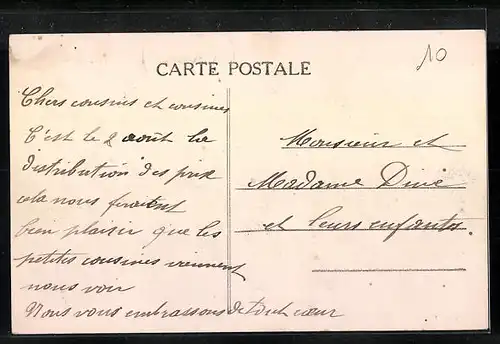 10
CARTE POSTALE
Chers cousins et cousines
C'est le 2 août la
distribution des prix
cela nous feraient
bien plaisir que les
petites cousines viennent
nous voir
Nous vous embrassons de tout cœur
Monsieur et
Madame
et leurs enfants.